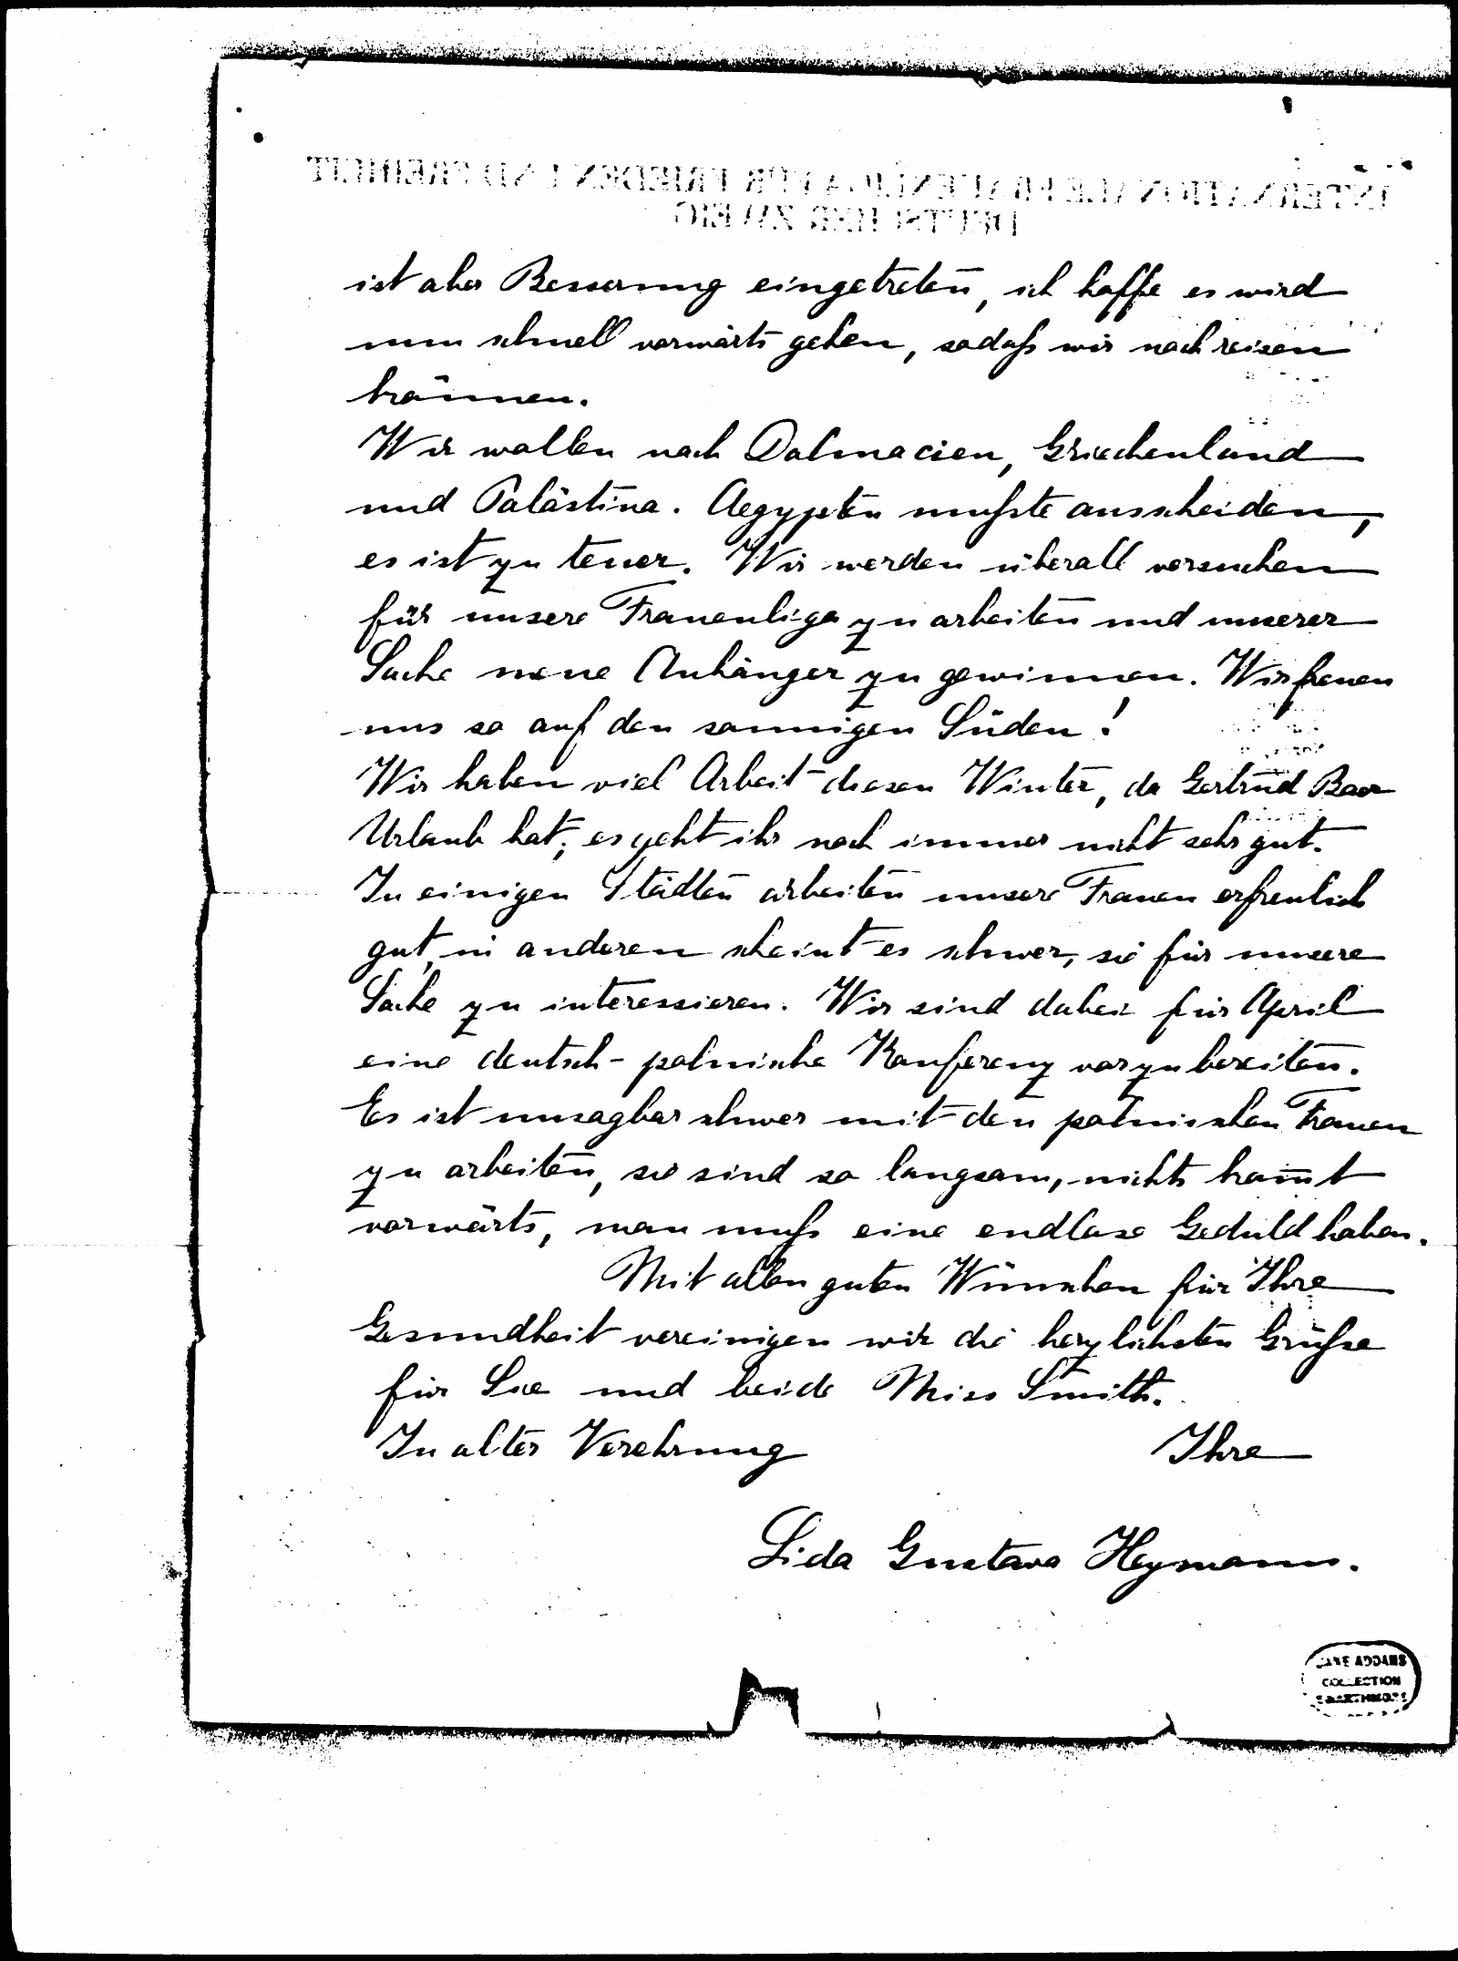 INTERNATIONALE FRAUENLIGA FÜR FRIEDEN UND FREIHEIT
DEUTSCHER ZWEIG
ist aber Besserung eingetreten, ich hoffe es wird
nun schnell vorwärts gehen, sodaß wir noch reisen
können.
Wir wollen nach Dalmacien, Griechenland
und Palästina. Aegypten mußte ausscheiden,
es ist zu teuer. Wir werden überall versuchen
für unsere Frauenliga zu arbeiten und unserer
Sache neue Anhänger zu gewinnen. Wir freuen
uns so auf den sonnigen Süden!
Wir haben viel Arbeit diesen Winter, da Gertrud Baer
Urlaub hat, es geht ihr noch immer nicht sehr gut.
In einigen Städten arbeiten unsere Frauen erfreulich
gut, in anderen scheint es schwer, sie für unsere
Sache zu interessieren. Wir sind dabei für April
eine deutsch-polnische Konferenz vorzubereiten.
Es ist unsagbar schwer mit den polnischen Frauen
zu arbeiten, sie sind so langsam, nichts kom̄t
vorwärts, man muß eine endlose Geduld haben.
Mit allen guten Wünschen für Ihre
Gesundheit vereinigen wir die herzlichsten Grüße
für Sie und beide Miss Smith.
In alter Verehrung Ihre
Lida Gustava Heymann.
JANE ADDAMS
COLLECTION
SWARTHMORE